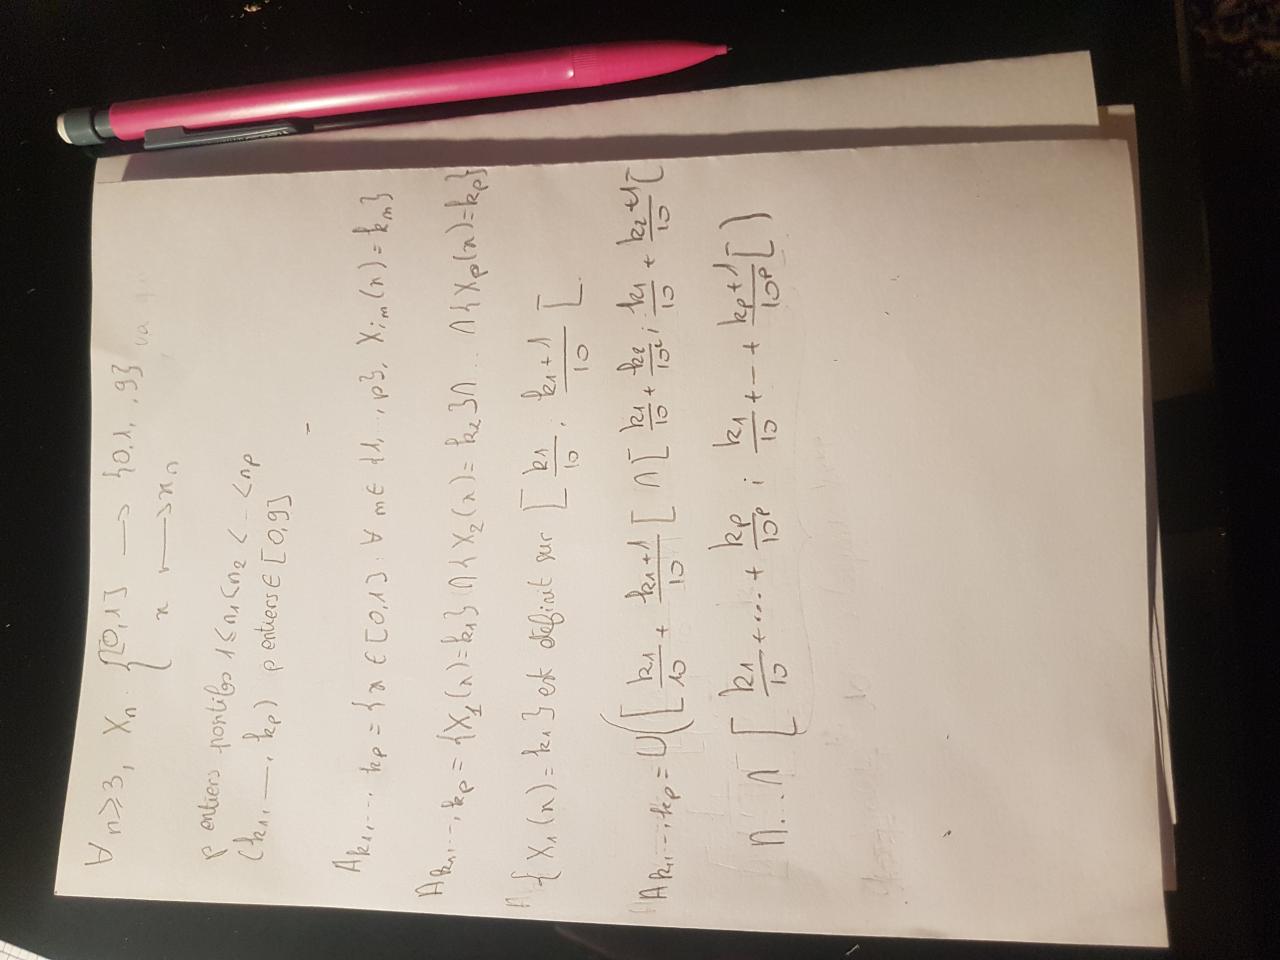 ∀ n ≥ 3, Xn : { [0,1] → {0,1, ,9}
x ↦ xn
p entiers positifs 1 ≤ n1 < n2 < … < np
(k1, —, kp) p entiers ∈ [0,9]
Ak1,…,kp = {x ∈ [0,1] : ∀ m ∈ {1,…,p}, Xim(x) = km}
Ak1,…,kp = {X1(x) = k1} ∩ {X2(x) = k2} ∩ … ∩ {Xp(x) = kp}
{X1(x) = k1} est définit sur [k1/10 ; (k1+1)/10[.
Ak1,…,kp = ∪([k1/10 + (k1+1)/10[ ∩ [k1/10 + k2/10² ; k1/10 + (k2+1)/10[
∩…∩ [k1/10 + … + kp/10^p ; k1/10 + … + (kp+1)/10^p[)